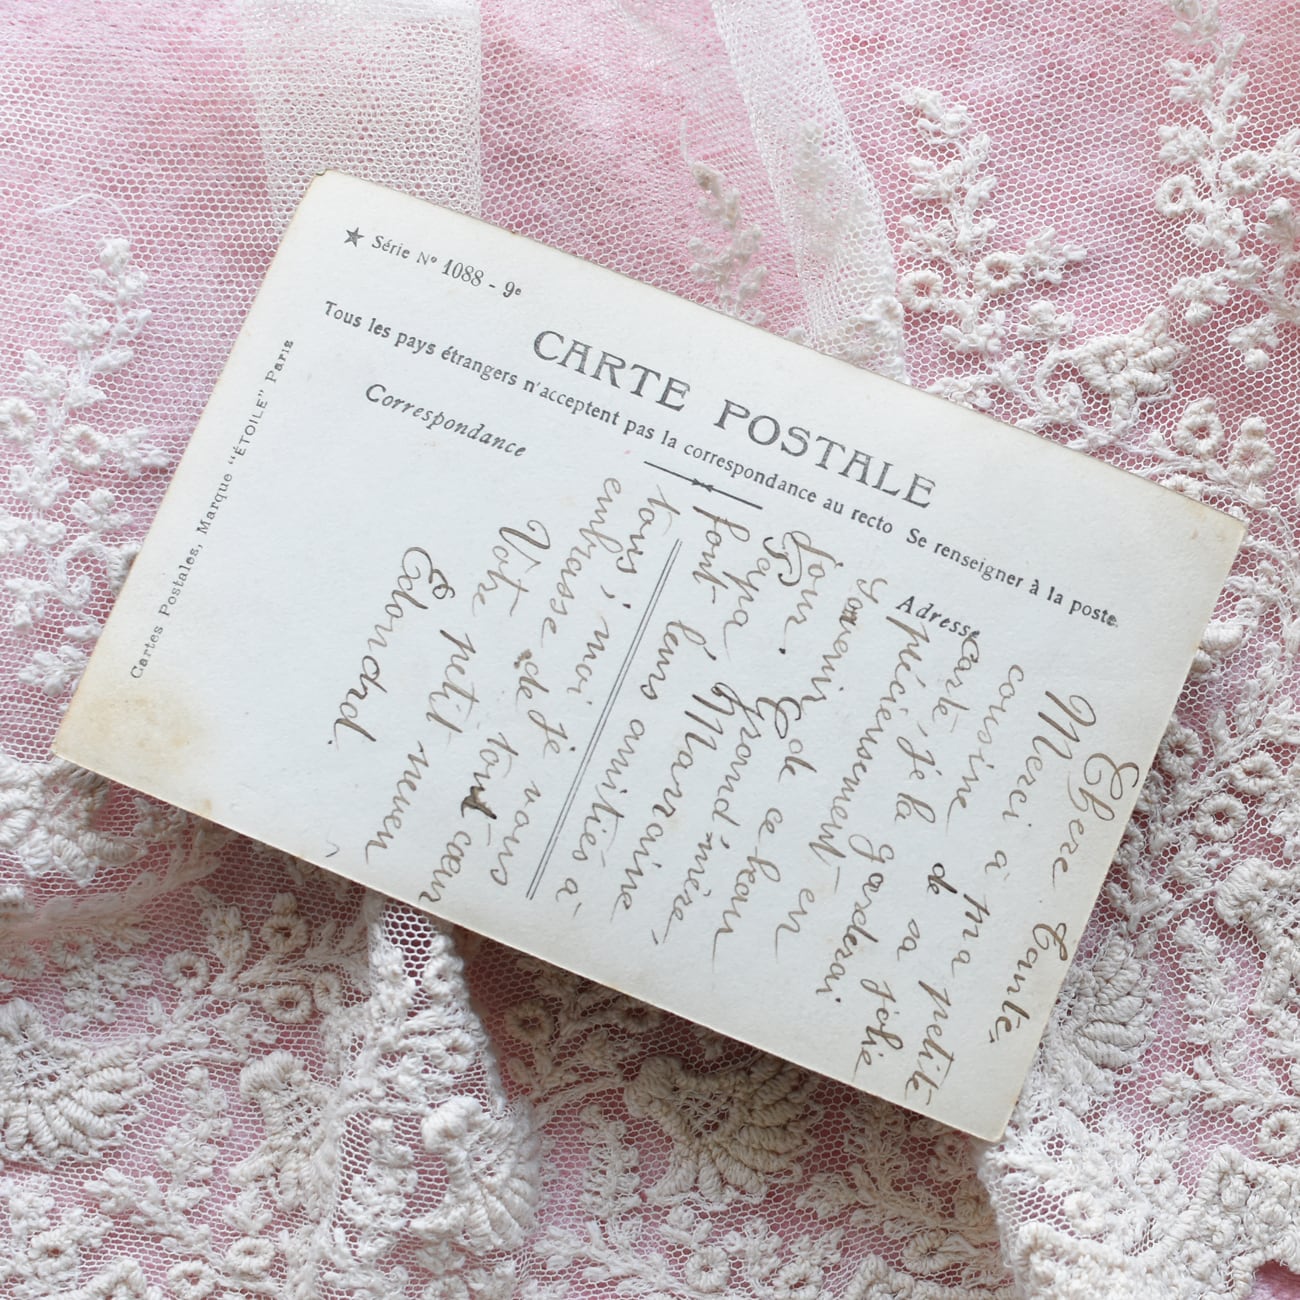 ★ Série Nº 1088 - 9e
CARTE POSTALE
Tous les pays étrangers n'acceptent pas la correspondance au recto Se renseigner à la poste.
Correspondance
Adresse
Cartes Postales, Marque "ÉTOILE" Paris
Chere Tante,
Merci à ma petite
cousine de sa jolie
carte, je la garderai
précieusement en
souvenir de ce beau
jour.
Papa, Grand'mère,
font leurs amitiés à
tous, moi je vous
embrasse de tout cœur
Votre petit neveu
Edouard.